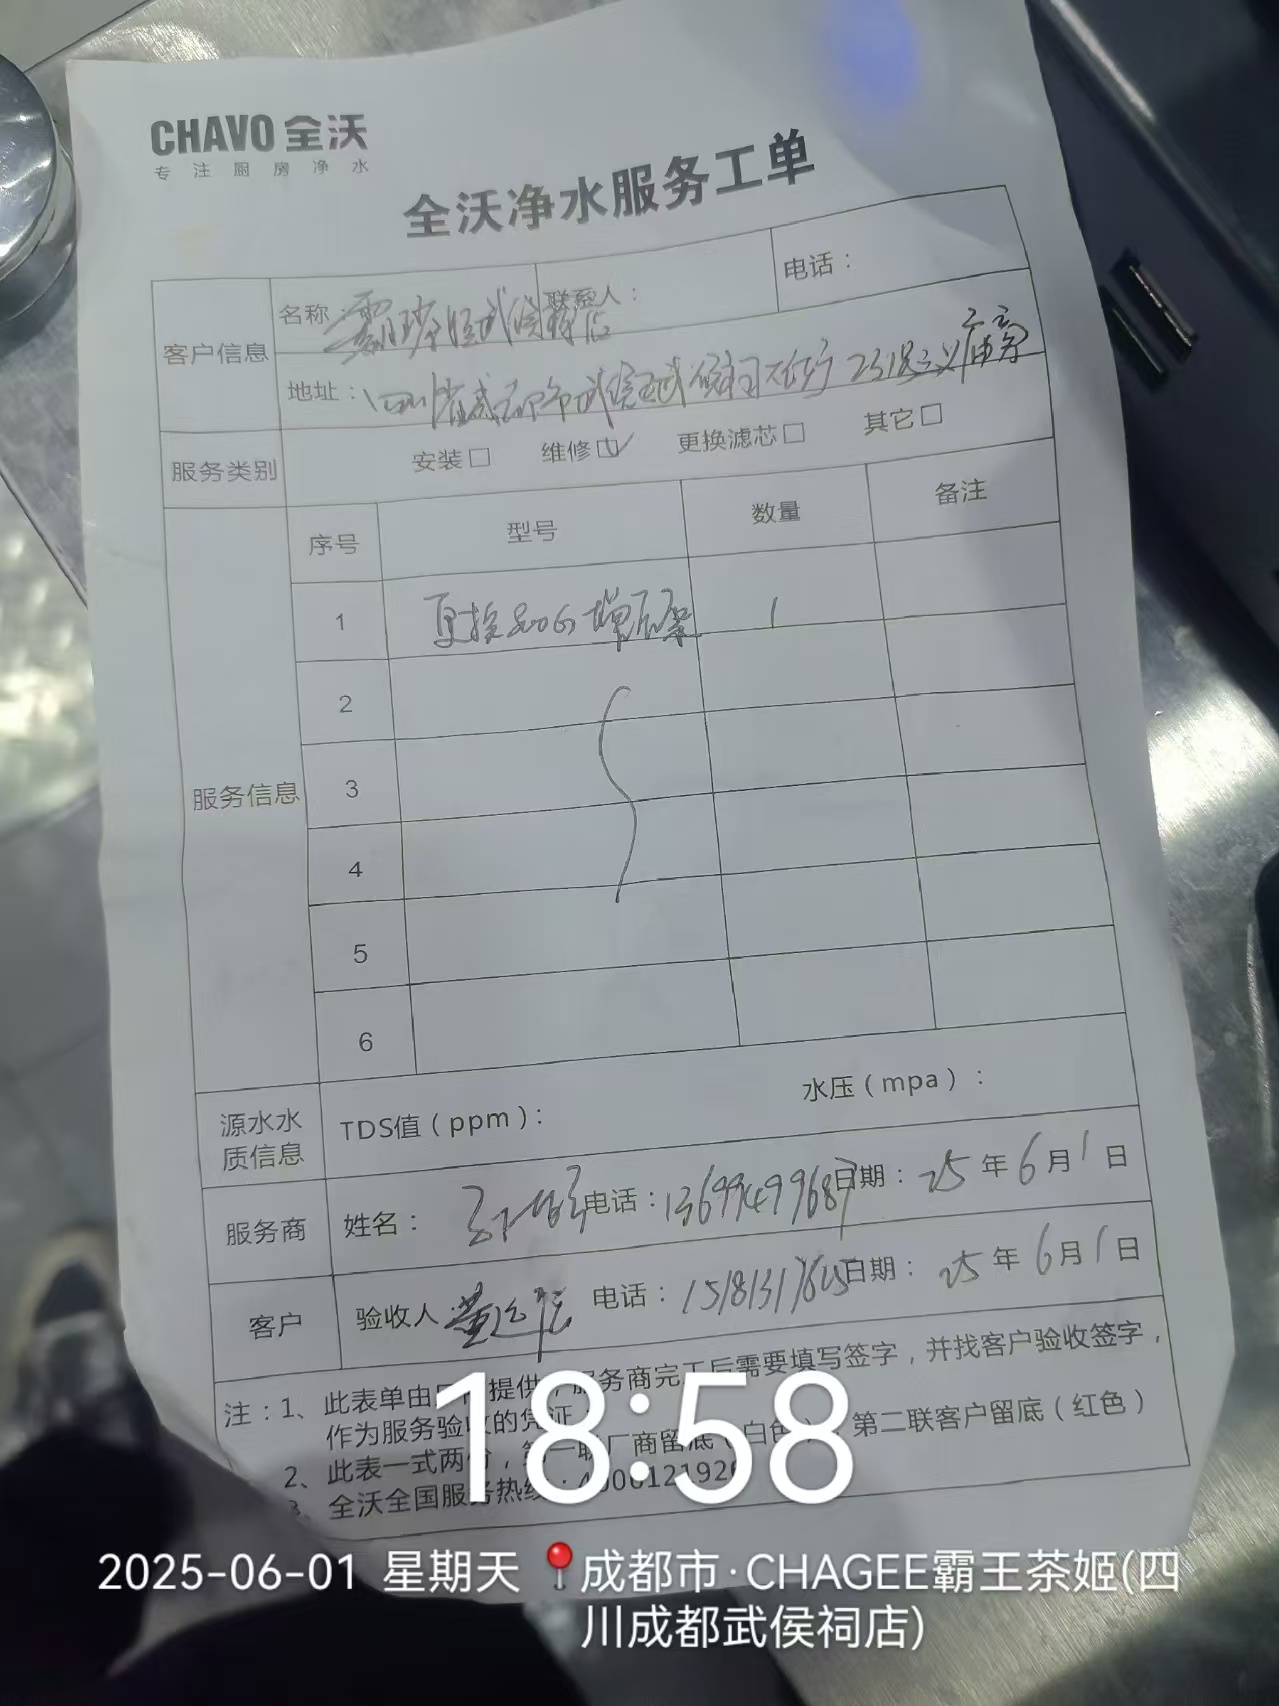 CHAVO 全沃
专注厨房净水
全沃净水服务工单
客户信息
名称：
联系人：
电话：
地址：四川省成都市武侯区武侯祠大街231号
服务类别
安装□ 维修☑ 更换滤芯□ 其它□
服务信息
序号 型号 数量 备注
1 更换800G增压泵 1
2
3
4
5
6
源水水质信息
TDS值（ppm）： 水压（mpa）：
服务商 姓名： 电话：13699499687 日期：25年6月1日
客户 验收人： 电话： 日期：25年6月1日
注：1、此表单由 提供，服务商完工后需要填写签字，并找客户验收签字，
作为服务验收的凭证
2、此表一式两份，第一联厂商留底（白色），第二联客户留底（红色）
3、全沃全国服务热线：
18:58
2025-06-01 星期天 成都市·CHAGEE霸王茶姬(四
川成都武侯祠店)